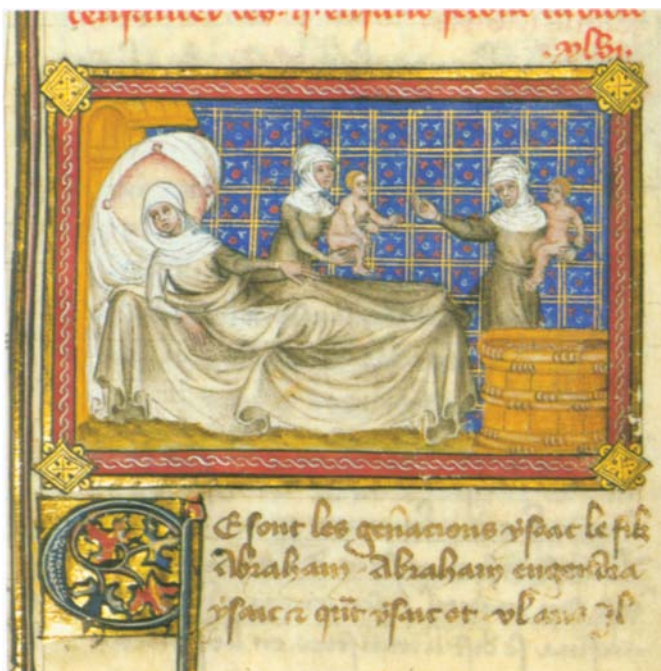 les .ii. enfans
CE sont les gen̄acions ysaac le filz
Abraham . Abraham engendra
ysaac & qn̄t ysaac ot xl ans Il